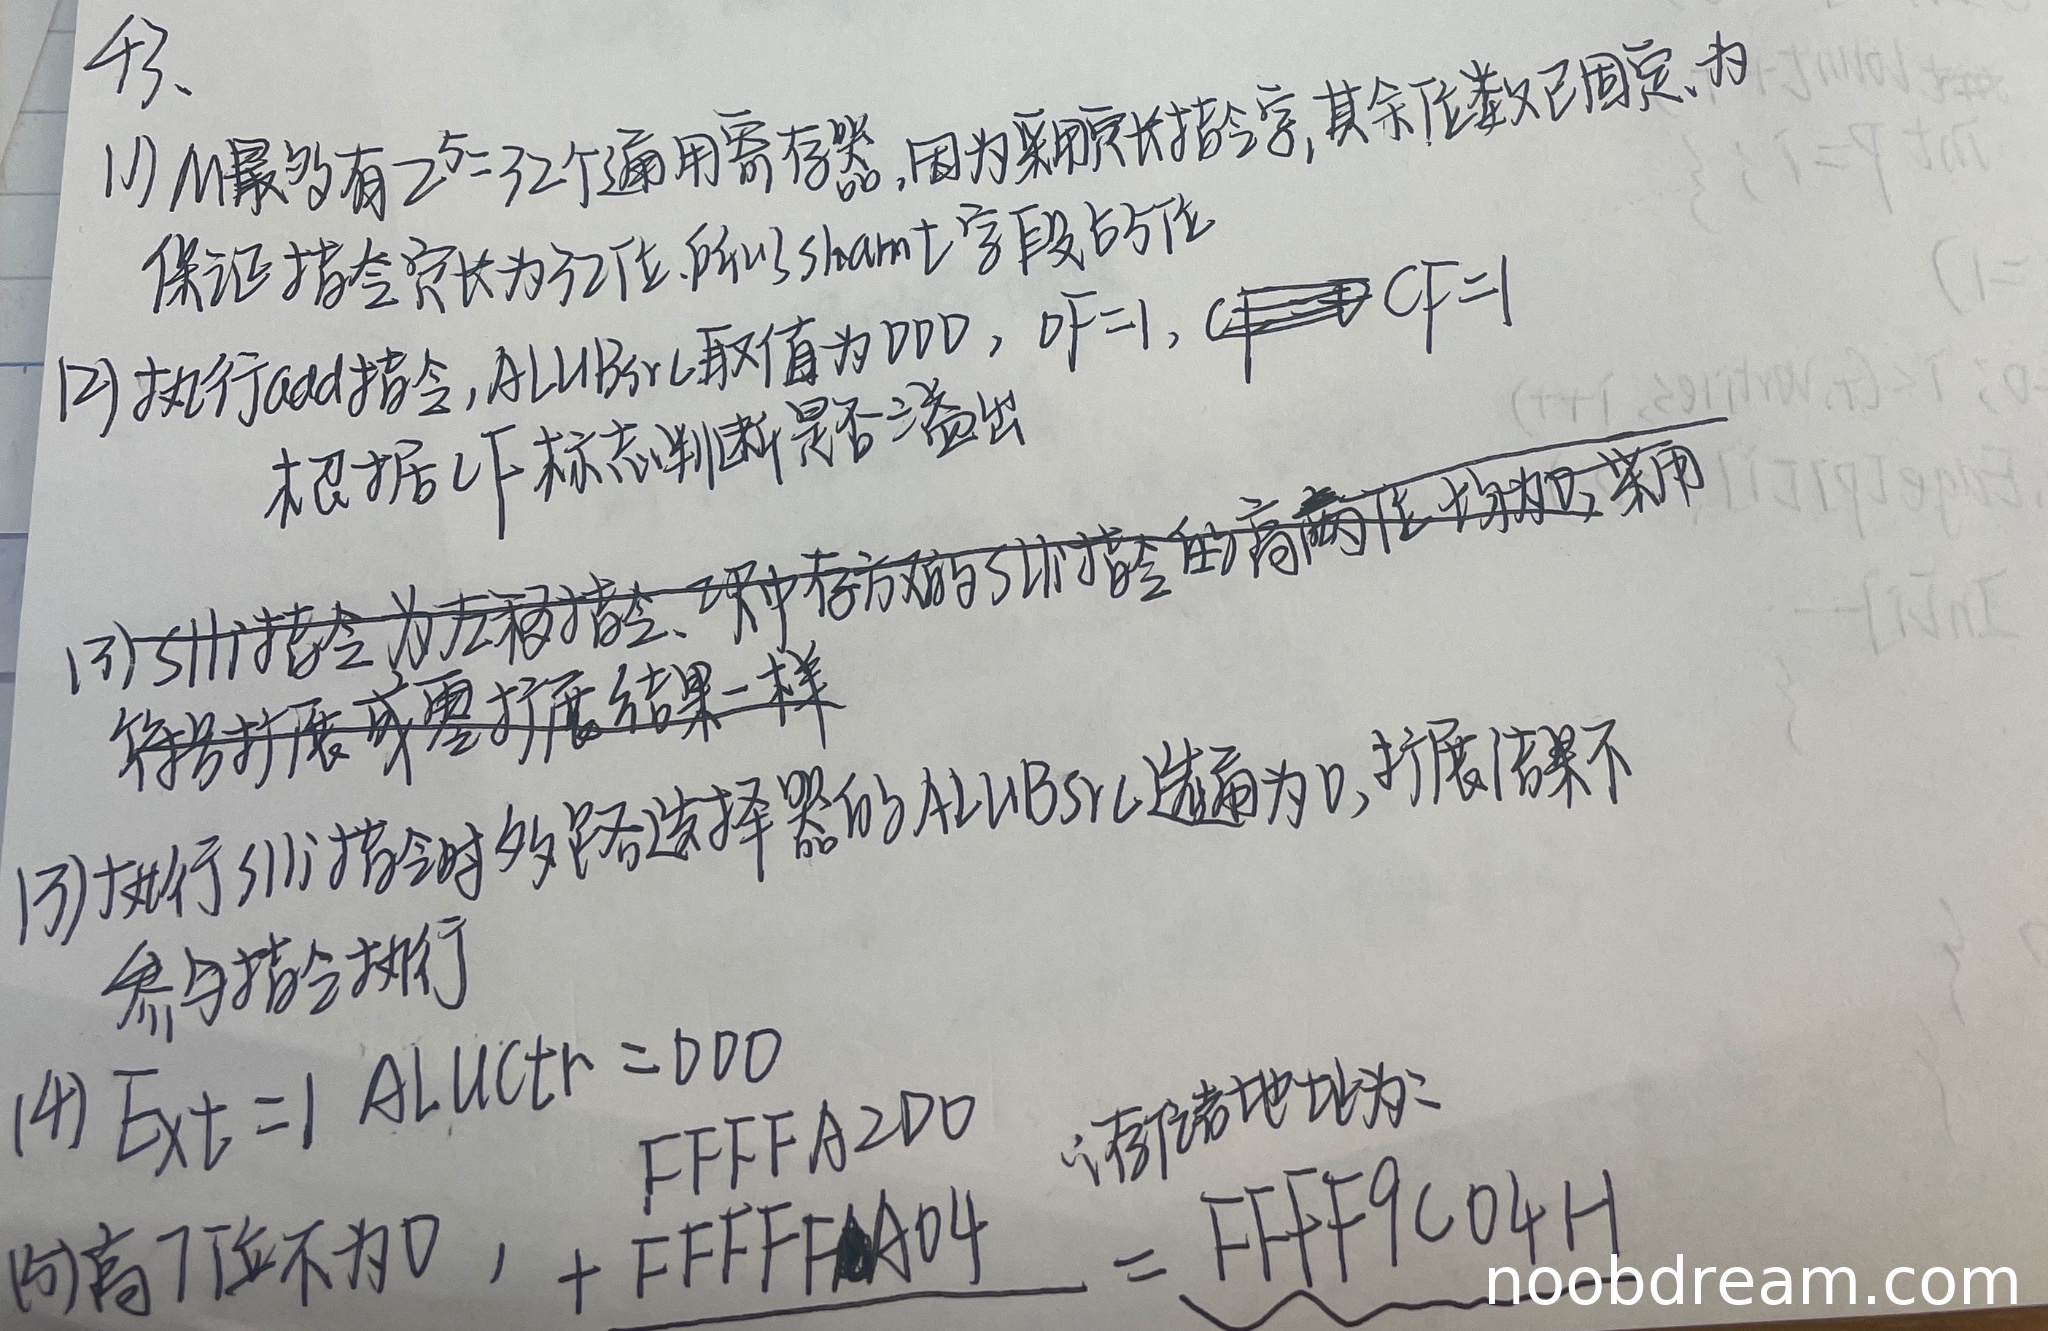 43、
(1) M最多有2^5=32个通用寄存器，因为采用定长指令字，其余位数已固定、为
保证指令定长为32位，所以shamt字段占5位
(2) 执行add指令，ALUBsrc取值为000，OF=1，CF=1
根据CF标志判断是否溢出
(3) slli指令为左移指令、题中存放的slli指令的高两位均为0，采用
符号扩展或零扩展结果一样
(3) 执行slli指令时多路选择器的ALUBsrc选通为0，扩展结果不
参与指令执行
(4) Ext=1 ALUCtr=000
(5) 高7位不为0，
FFFFA2D0
+ FFFFFA04
∴存储地址为：
= FFFF9C04H
noobdream.com